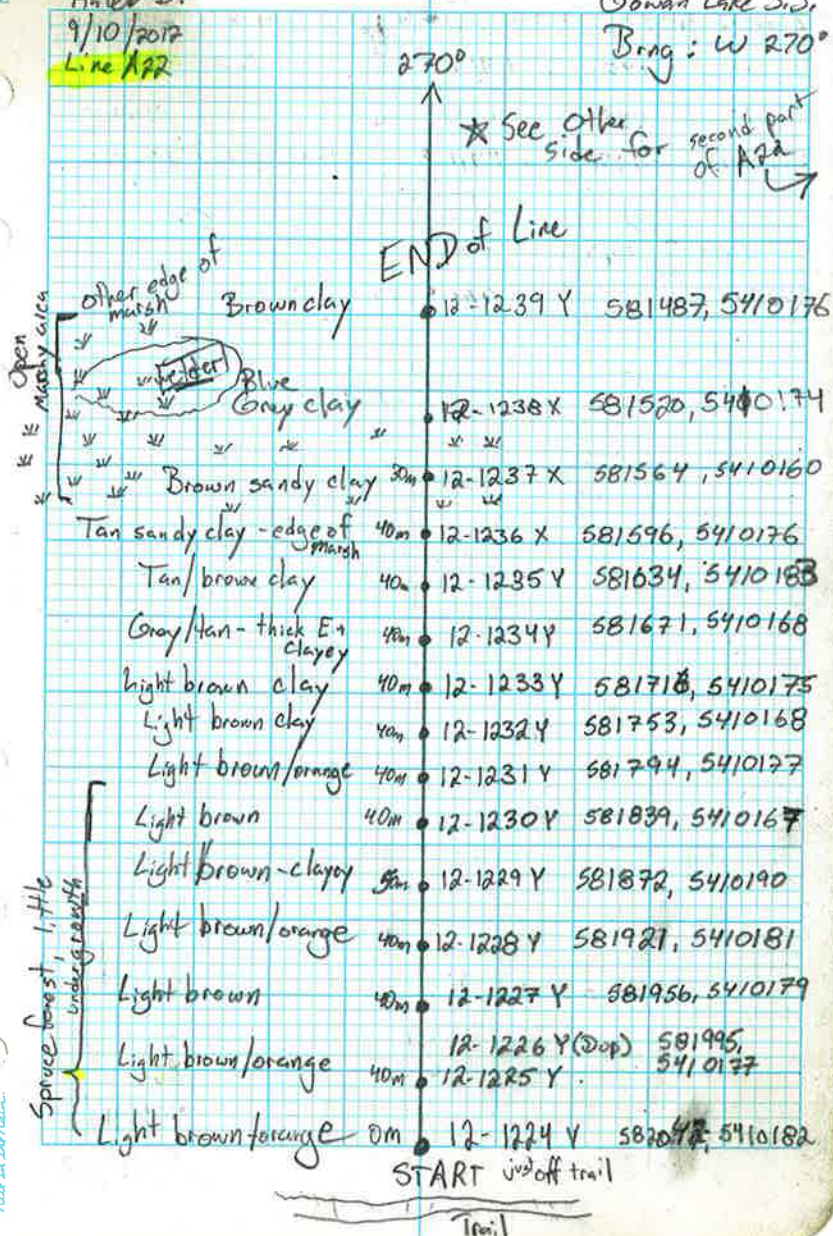 9/10/2012
Line A22
Gowan Lake S.S.
Brng: W 270°
270°
☆ See other side for second part of A22
END of Line
Open Marshy area
other edge of marsh Brown clay 12-1239 Y 581487, 5410176
elder
Blue Gray clay 12-1238 X 581520, 5410174
Brown sandy clay 30m 12-1237 X 581564, 5410160
Tan sandy clay - edge of marsh 40m 12-1236 X 581596, 5410176
Tan/brown clay 40m 12-1235 Y 581634, 5410183
Gray/tan - thick E+ clayey 40m 12-1234 Y 581671, 5410168
Light brown clay 40m 12-1233 Y 581716, 5410175
Light brown clay 40m 12-1232 Y 581753, 5410168
Light brown/orange 40m 12-1231 Y 581794, 5410177
Spruce forest, little undergrowth
Light brown 40m 12-1230 Y 581839, 5410167
Light brown-clayey 12-1229 Y 581872, 5410190
Light brown/orange 40m 12-1228 Y 581921, 5410181
Light brown 40m 12-1227 Y 581956, 5410179
12-1226 Y (Dup) 581995, 5410177
Light brown/orange 40m 12-1225 Y
Light brown+orange 0m 12-1224 Y 582047, 5410182
START just off trail
Trail